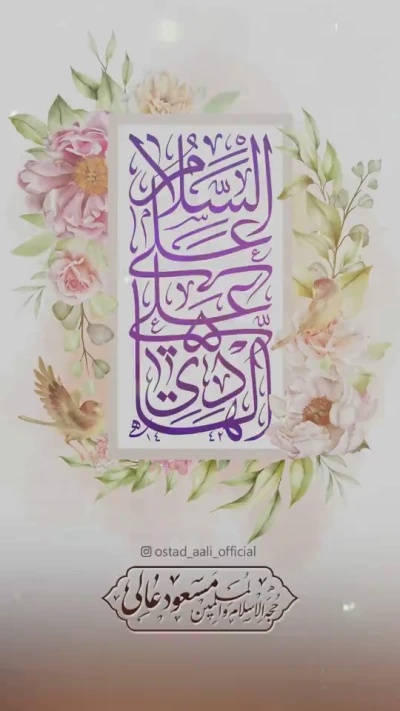 السلام
علی
علي
الهادي
۱٤٤۲
ostad_aali_official
حجة الاسلام والمسلمین مسعود عالی